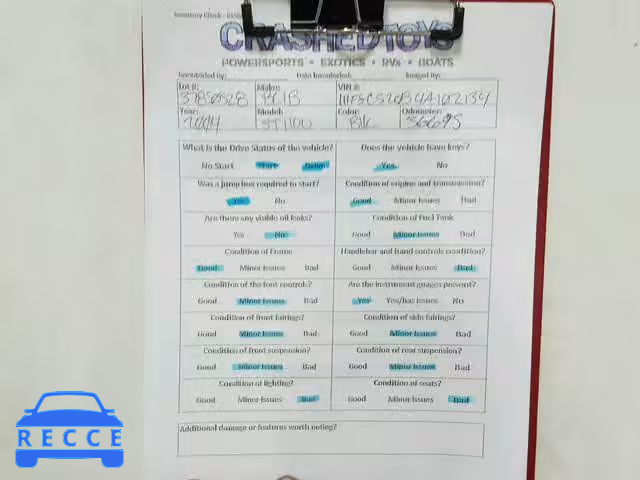 CRASHEDTOYS
POWERSPORTS • EXOTICS • RVs • BOATS
Inventoried By: Date Inventoried: Imaged By:
Lot #: Make: VIN #:
37850328
Year: Model: Color: Odometer:
2004 ST1100 Blk 56695
What is the Drive Status of the vehicle? Does the vehicle have keys?
No Start Start Drive Yes No
Was a jump box required to start? Condition of engine and transmission?
Yes No Good Minor Issues Bad
Are there any visible oil leaks? Condition of Fuel Tank
Yes No Good Minor Issues Bad
Condition of Frame Handlebar and hand controls condition?
Good Minor Issues Bad Good Minor Issues Bad
Condition of the foot controls? Are the instrument guages present?
Good Minor Issues Bad Yes Yes/has issues No
Condition of front fairings? Condition of side fairings?
Good Minor Issues Bad Good Minor Issues Bad
Condition of front suspension? Condition of rear suspension?
Good Minor Issues Bad Good Minor Issues Bad
Condition of lighting? Condition of seats?
Good Minor Issues Bad Good Minor Issues Bad
Additional damage or features worth noting?
RECCE